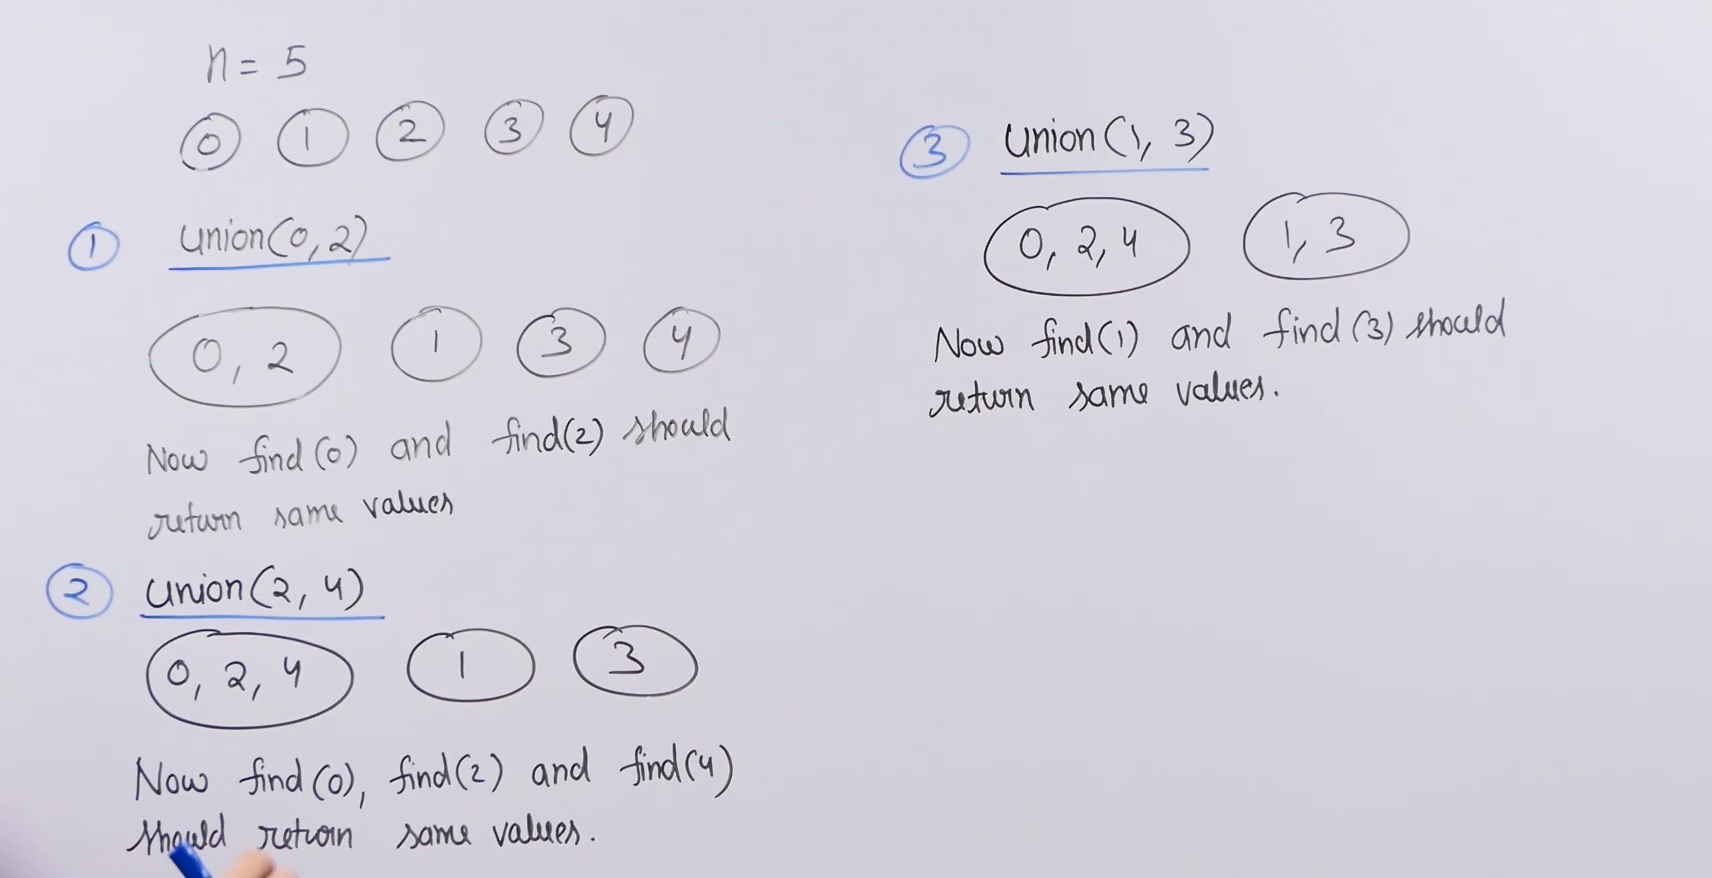 n = 5
0 1 2 3 4
1 union(0, 2)
0, 2 1 3 4
Now find(0) and find(2) should
return same values
2 union(2, 4)
0, 2, 4 1 3
Now find(0), find(2) and find(4)
should return same values.
3 union(1, 3)
0, 2, 4 1, 3
Now find(1) and find(3) should
return same values.